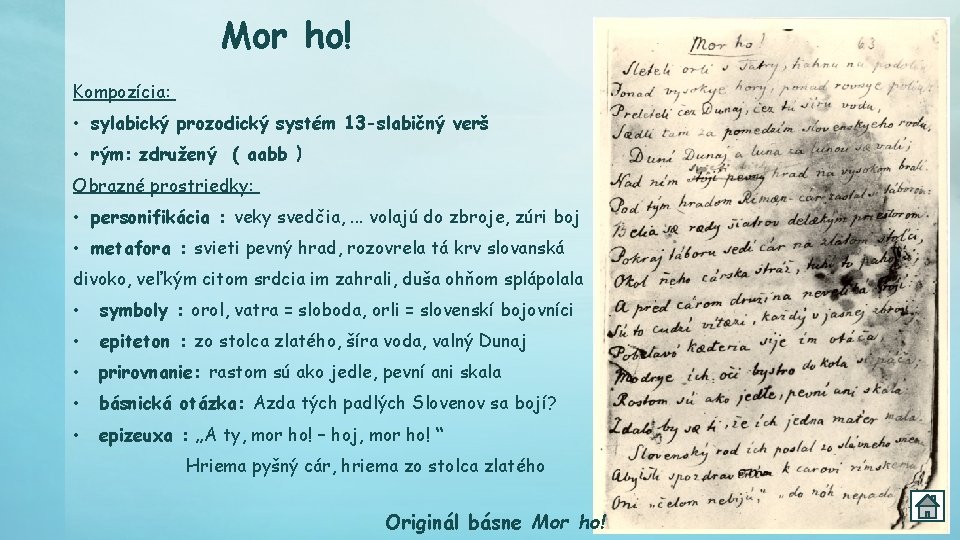 Mor ho!
Kompozícia:
• sylabický prozodický systém 13-slabičný verš
• rým: združený ( aabb )
Obrazné prostriedky:
• personifikácia : veky svedčia, ... volajú do zbroje, zúri boj
• metafora : svieti pevný hrad, rozovrela tá krv slovanská
divoko, veľkým citom srdcia im zahrali, duša ohňom splápolala
• symboly : orol, vatra = sloboda, orli = slovenskí bojovníci
• epiteton : zo stolca zlatého, šíra voda, valný Dunaj
• prirovnanie: rastom sú ako jedle, pevní ani skala
• básnická otázka: Azda tých padlých Slovenov sa bojí?
• epizeuxa : „A ty, mor ho! – hoj, mor ho! “
Hriema pyšný cár, hriema zo stolca zlatého
Originál básne Mor ho!
Mor ho! 63
Sleteli orli s Tatry, tiahnu na podolia
Ponad vysokye hory, ponad rovnye polia
Preleteli čez Dunaj, čez tú šíru vodu,
Sædli tam za pomedzím slovenskyeho rodu,
Duní Dunaj a luna za lunou sa valí;
Nad ním svieti pevny hrad na vysokom bralí.
Pod tým hradom Riman cár zastal s táborom:
Belia sæ rady šiatrov delækým priestorom.
Pokraj táboru sedí cár na zlatom stolci,
Okol ňeho cárska stráž,
A pred cárom družina nevelká stojí:
Sú to cudzí vítæzi, každý v jasnej zbroji.
Pobelavó kæderia sije im otáča,
Modrye ich oči bystro do kola
Rostom sú ako jedle, pevní ani skala
Zdalo by sæ ti, že ích jedna mater mala.
Slovenský rod ích poslal zo slávneho snemu
Abyšti spozdravenia k cárovi rímskemu
Oni „čelom nebijú,“ „do nôh nepada